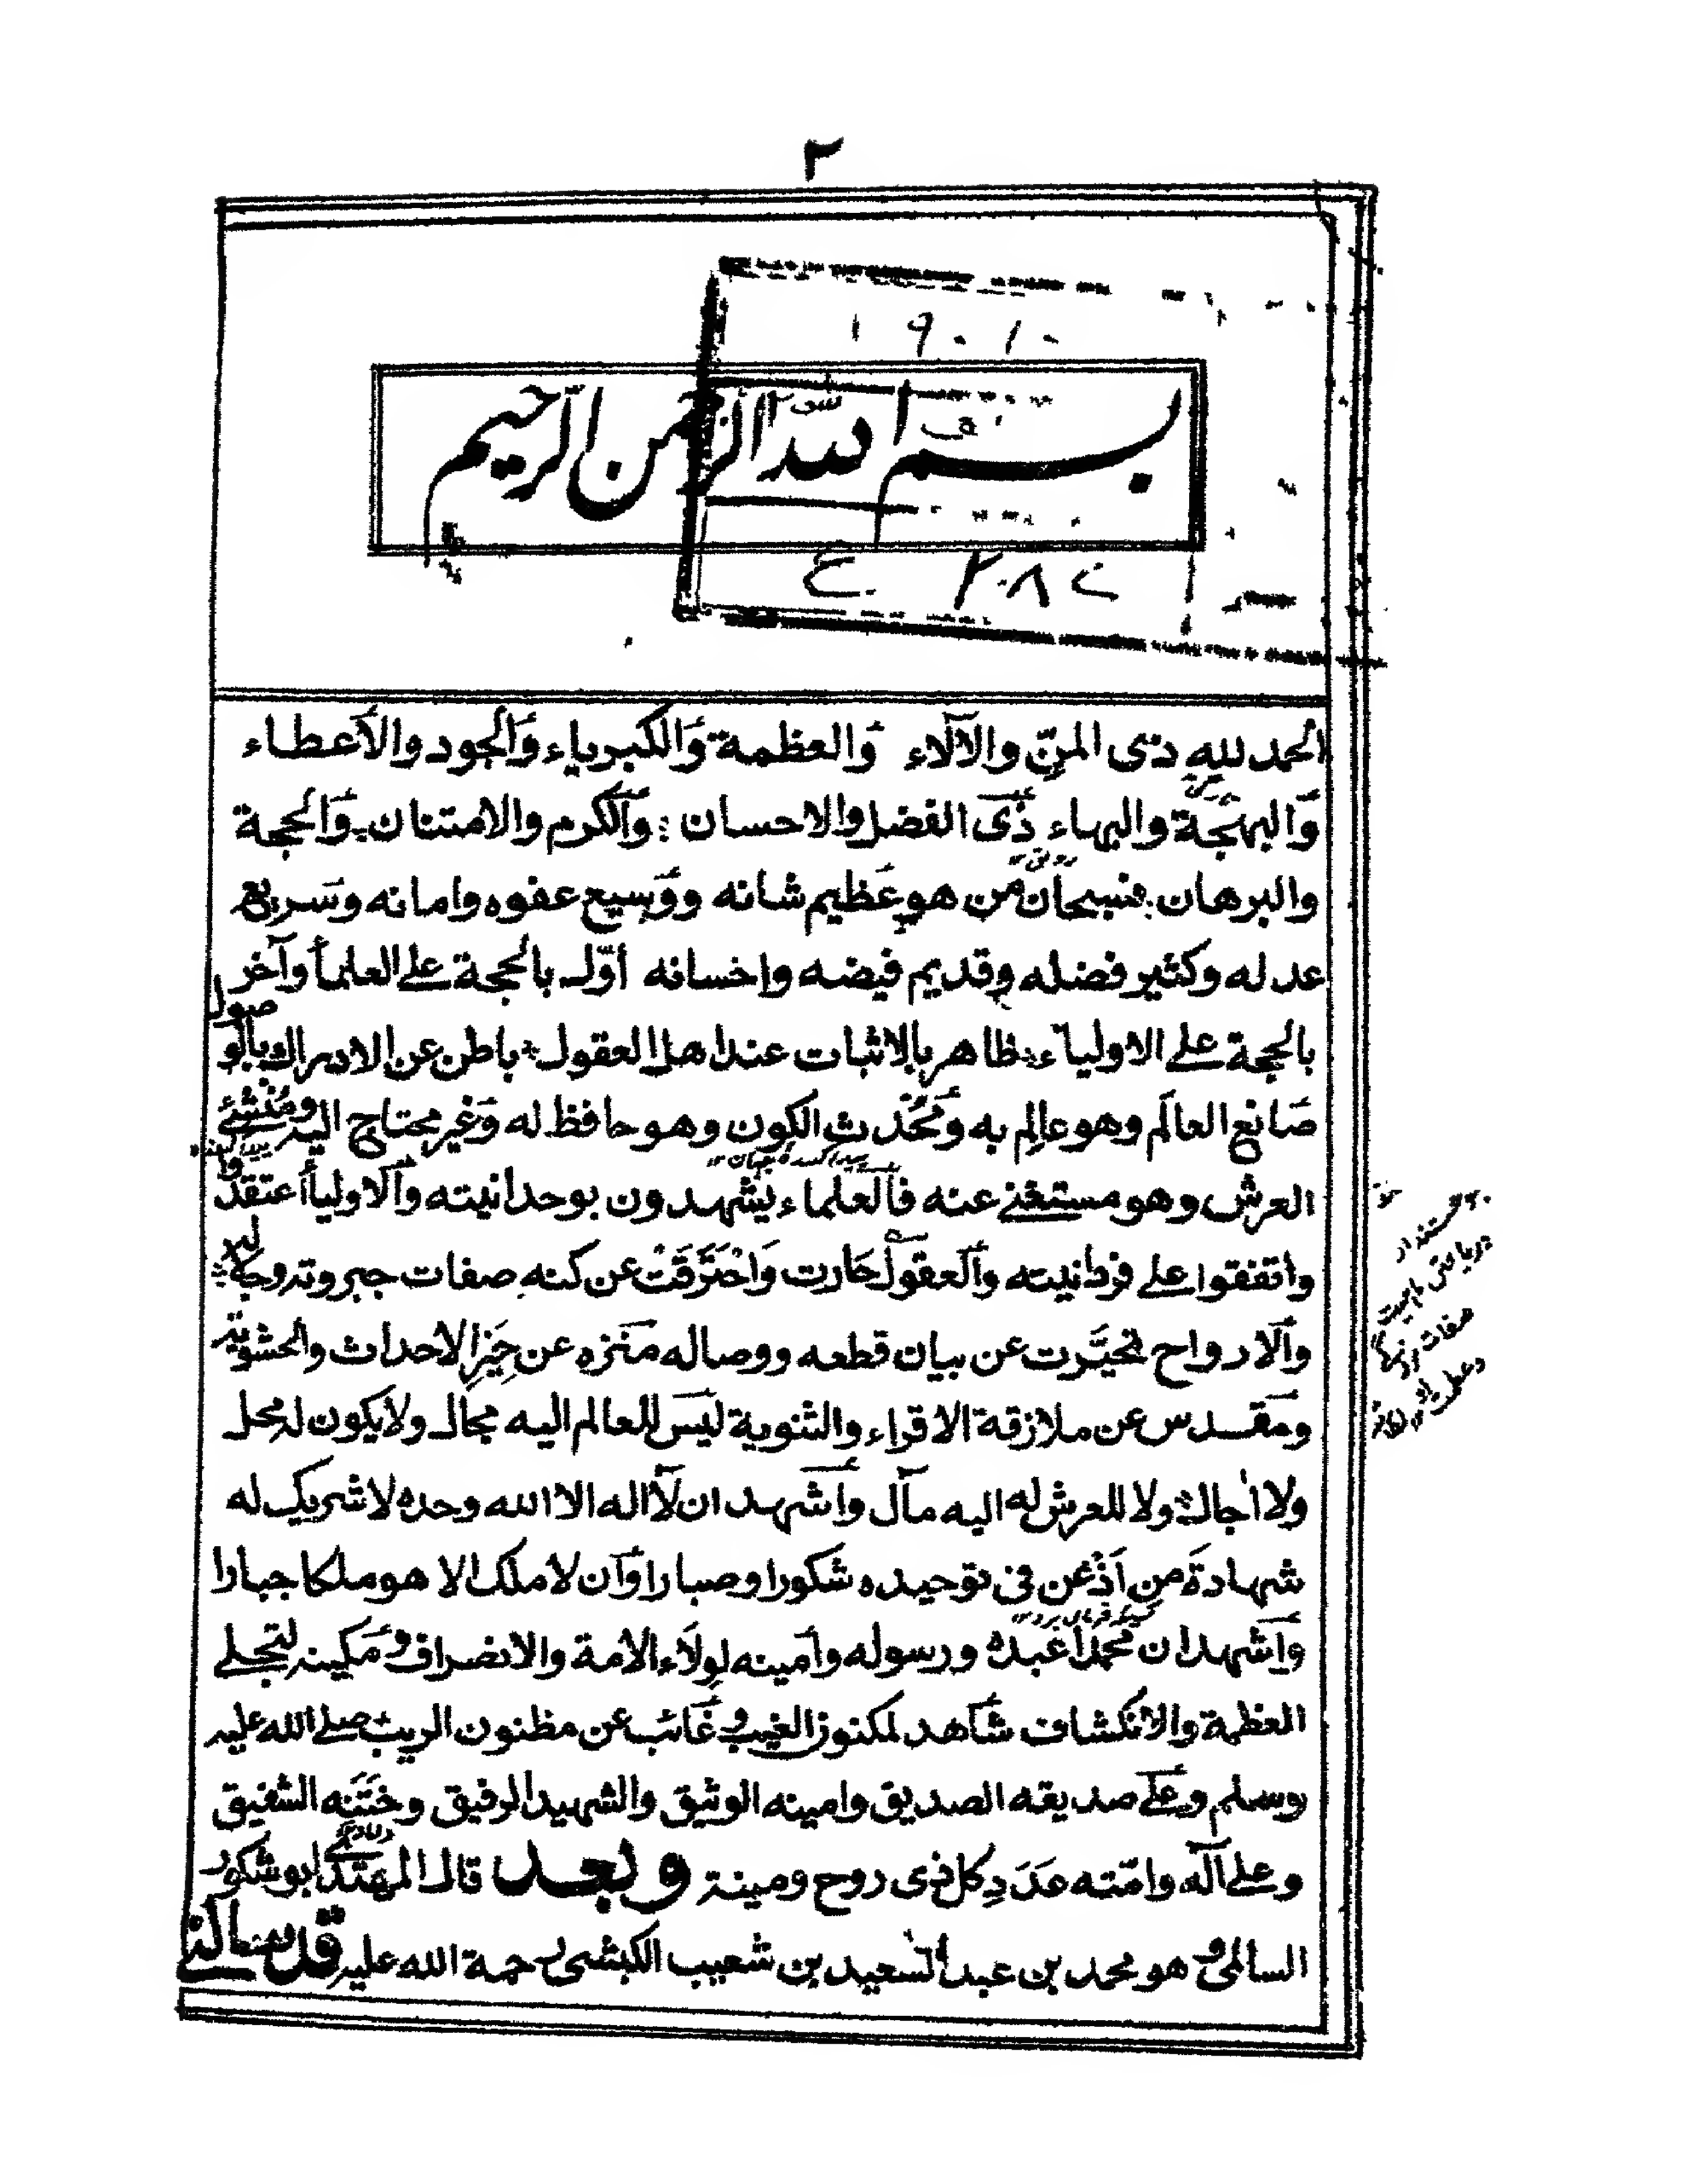 ٢
١٩٠١٠
بسم الله الرحمن الرحيم
٢٠٨٢
الحمد لله ذى المنّ والآلاء وَالعظمة وَالكبرياء وَالجود والأعطاء
وَالبهجة والبهاء ذَى الفضل والاحسان وَالكرم والامتنان وَالحجة
والبرهان فسبحان من هو عَظيم شانه ووَسيع عفوه وامانه وسَريع
عدله وكثير فضله وقديم فيضه واحسانه أوّل بالحجة على العلمأ وآخر
بالحجة على الاولياء ظاهر بالاثبات عند اهل العقول باطن عن الادراك بالوصول
صَانع العالَم وهو عالِم به وَمُحْدث الكون وهو حافظ له وَغير محتاج اليه ومُنشئ
العرش وهو مستغنے عنه فالعلماء يشهدون بوحدانيته وَالاوليأ أعتقدوا
واتفقوا على فردانيته وَالعقول حَارت وَاحْتَرَقَتْ عن كنه صفات جبروته وجلاله
وَالارواح تحيَّرت عن بيان قطعه ووصاله منزه عن حَيّزِ الاحداث والحشوية
ومقَدس عن ملازقة الاقراء والثنوية ليسَ للعالم اليه مجال ولا يكون له محل
ولا اٰجال ولا للعرش له اليه مآل وَاشهد ان لَا اله الا الله وحده لا شريك له
شهادةَ من اَذْعن فى توحيده شكورا وصبارا وَان لا ملك الا هو ملكا جبارا
وَاشهد ان محمدًا عَبده ورسوله وأمينه لِولَاء الامة والانصراف ومَكينه لتجلے
العظمة والانكشاف شَاهد لمكنون الغيب وغَائب عن مظنون الريب صلے الله عليه
وسلم وعَلے صديقه الصديق وامينه الوثيق والشهيد الرفيق وخَتَنَه الشفيق
وعلى آله وامّته عَدَدِ كل ذى روح ومينة وبعد قال المهتدى ابو شكور
السالمى وهو محمد بن عبد السعيد بن شعيب الكبشى رحمة الله عليه قد سالنے